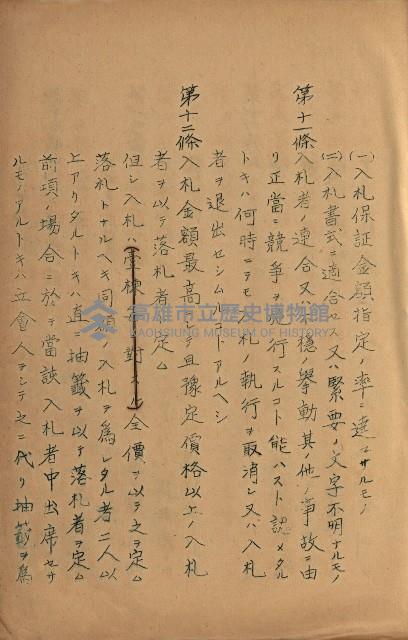 (一)入札保証金額指定ノ率ニ達セサルモノ
(二)入札書式ニ適合セス又ハ緊要ノ文字不明ナルモノ
第十一條 入札者ノ連合又ハ不穩ノ擧動其ノ他ノ事故ニ由
リ正當ニ競爭ヲ執行スルコト能ハスト認メタル
トキハ何時ニテモ入札ノ執行ヲ取消シ又ハ入札
者ヲ退出セシムルコトアルヘシ
第十二條 入札金額最高ニシテ且豫定價格以上ノ入札
者ヲ以テ落札者ト定ム
但シ入札ハ壹棟ニ對スル全價ヲ以テ之ヲ定ム
落札トナルヘキ同額ノ入札ヲ爲シタル者二人以
上アリタルトキハ直ニ抽籤ヲ以テ落札者ヲ定ム
前項ノ場合ニ於テ當該入札者中出席セサ
ルモノアルトキハ立會人ヲシテ之ニ代リ抽籤ヲ爲
高雄市立歷史博物館
KAOHSIUNG MUSEUM OF HISTORY